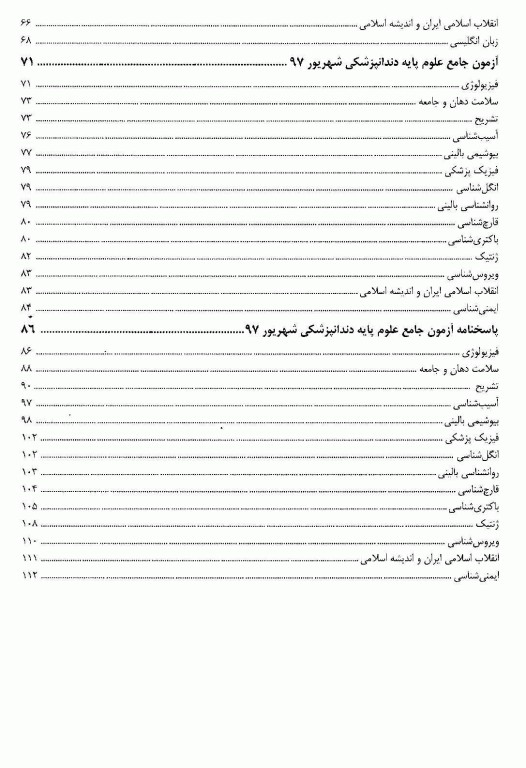 انقلاب اسلامی ایران و اندیشه اسلامی ۶۶
زبان انگلیسی ۶۸
آزمون جامع علوم پایه دندانپزشکی شهریور ۹۷ ۷۱
فیزیولوژی ۷۱
سلامت دهان و جامعه ۷۳
تشریح ۷۳
آسیب‌شناسی ۷۶
بیوشیمی بالینی ۷۷
فیزیک پزشکی ۷۹
انگل‌شناسی ۷۹
روانشناسی بالینی ۷۹
قارچ‌شناسی ۸۰
باکتری‌شناسی ۸۰
ژنتیک ۸۲
ویروس‌شناسی ۸۳
انقلاب اسلامی ایران و اندیشه اسلامی ۸۳
ایمنی‌شناسی ۸۴
پاسخنامه آزمون جامع علوم پایه دندانپزشکی شهریور ۹۷ ۸۶
فیزیولوژی ۸۶
سلامت دهان و جامعه ۸۸
تشریح ۹۰
آسیب‌شناسی ۹۷
بیوشیمی بالینی ۹۸
فیزیک پزشکی ۱۰۲
انگل‌شناسی ۱۰۲
روانشناسی بالینی ۱۰۳
قارچ‌شناسی ۱۰۴
باکتری‌شناسی ۱۰۵
ژنتیک ۱۰۸
ویروس‌شناسی ۱۱۰
انقلاب اسلامی ایران و اندیشه اسلامی ۱۱۱
ایمنی‌شناسی ۱۱۲